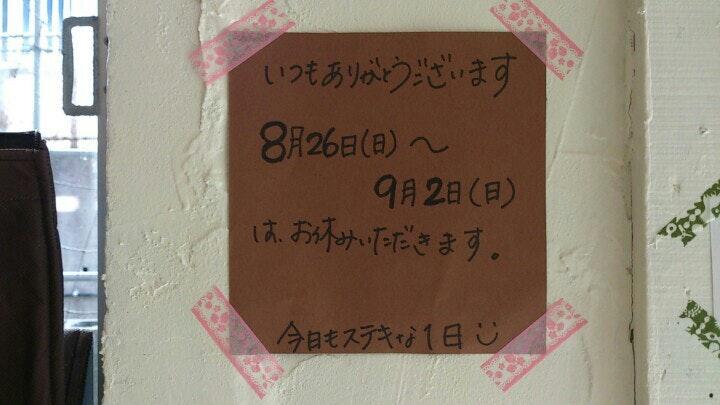 いつもありがとうございます
8月26日(日)～
9月2日(日)
は、お休みいただきます。
今日もステキな1日